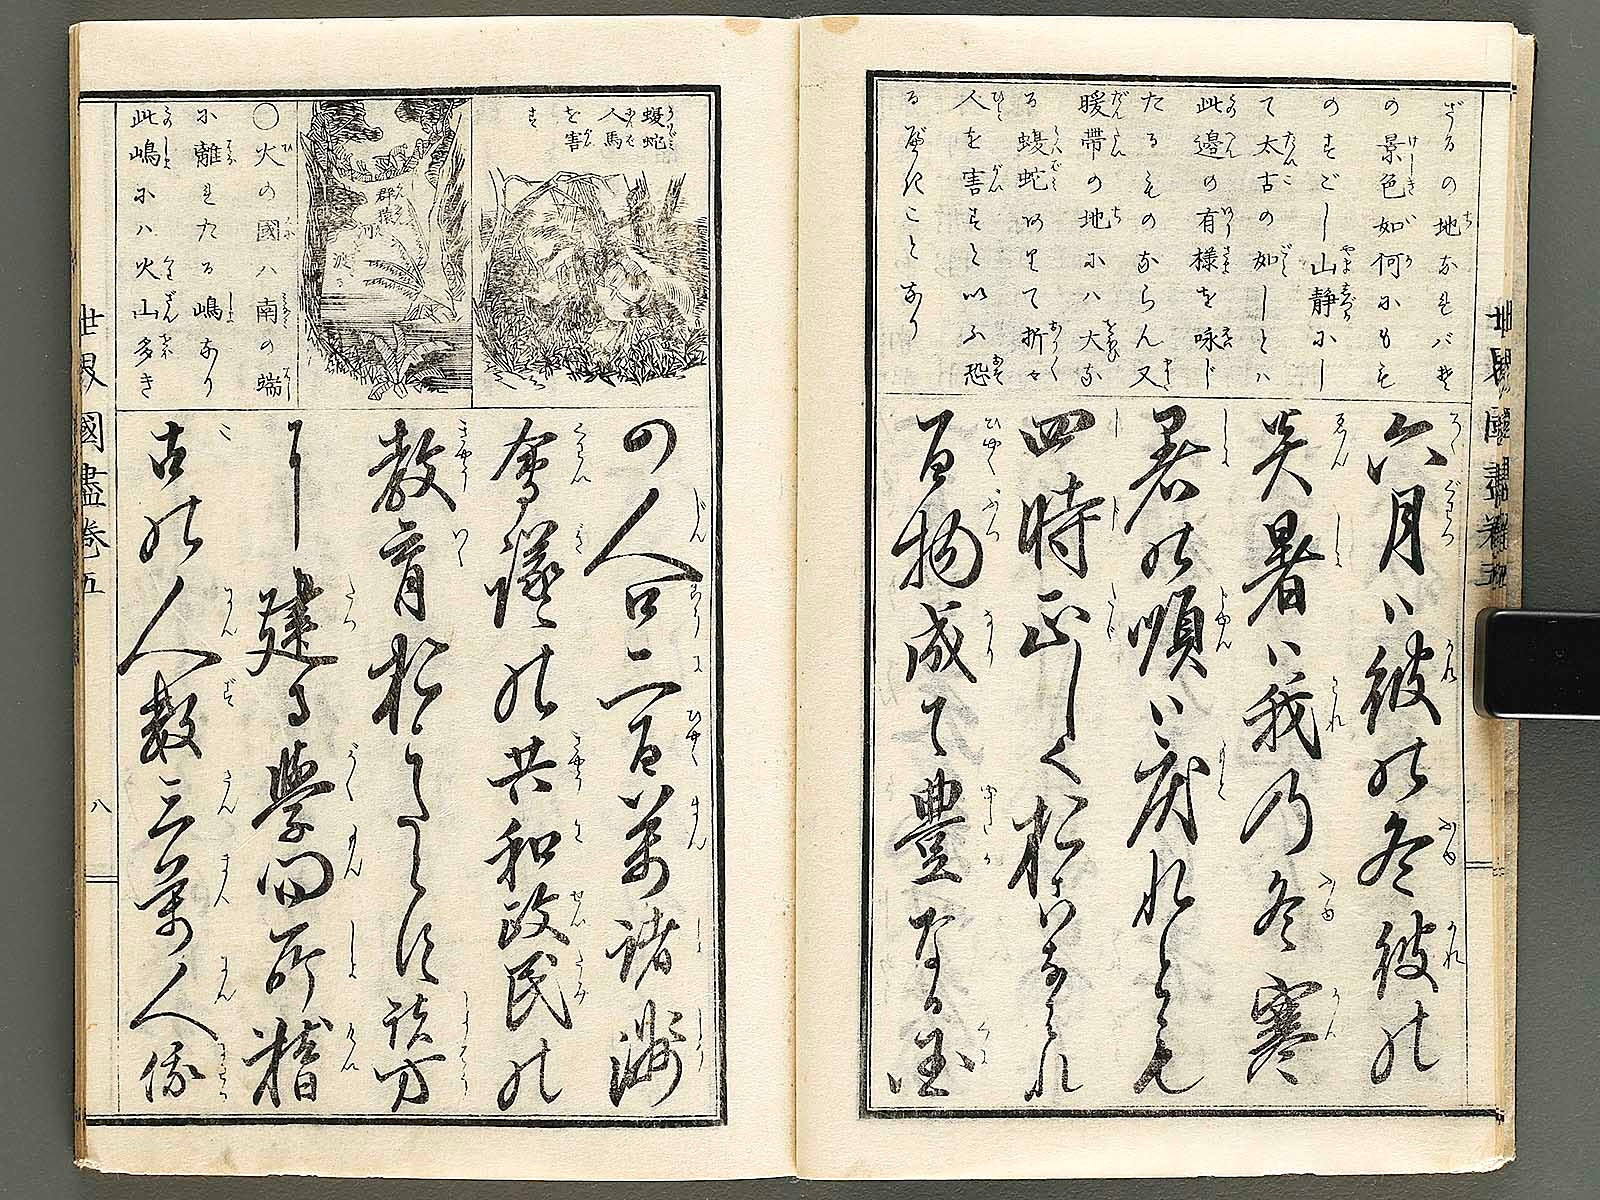 ざるの地なれバそ
の景色如何にもも
のすごし山静にし
て太古の如しとハ
此邊の有様を咏じ
たるものならん又
暖帯の地にハ大な
る蝮蛇ありて折々
人を害すといふ恐
る屋きことなり
六月ハ彼の冬彼の
炎暑ハ我の冬寒
暑の順ハ戻れとも
四時正しく
百物成て豊なる国
蝮蛇
人馬
を害
す
群猿
河
渡る
○火の國ハ南の端
に離れたる嶋なり
此嶋にハ火山多き
の人口二百萬諸洲
會議の共和政民の
教育 諸方
に建る學問所稽
古の人人数三萬人余
世界國盡巻五
八